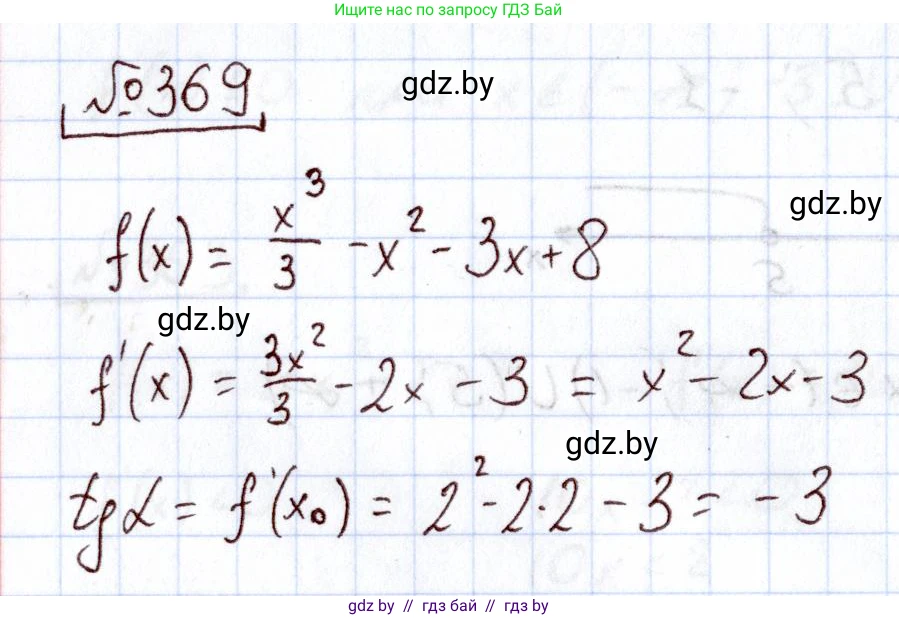 Ищите нас по запросу ГДЗ Бай
№369
gdz.by
gdz.by
f(x) = x³/3 - x² - 3x + 8
gdz.by
f'(x) = 3x²/3 - 2x - 3 = x² - 2x - 3
gdz.by
tgα = f'(x₀) = 2² - 2·2 - 3 = -3
gdz.by // гдз бай // гдз by